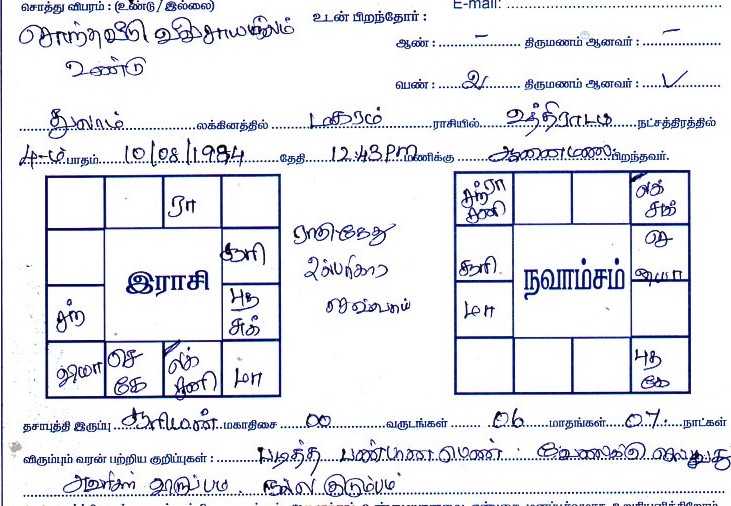 சொத்து விபரம் : (உண்டு / இல்லை) E-mail:
சொந்தவீடு விவசாயநிலம் உடன் பிறந்தோர் :
உண்டு ஆண் : – திருமணம் ஆனவர் : –
பெண் : 2 திருமணம் ஆனவர் :
துலாம் லக்கினத்தில் மகரம் ராசியில் உத்திராடம் நட்சத்திரத்தில்
4-ம் பாதம் 10/08/1984 தேதி 12.43 PM மணிக்கு ஆனைமலை பிறந்தவர்.
ரா
சூரி
இராசி
சந் புத சுக்
வியா செ கே லக் சனி மா
ராகு கேது
பரிகார
செவ்வாய்
சந் ரா சனி லக் சுக்
சூரி நவாம்சம் செ வியா
மா
புத கே
தசாபுத்தி இருப்பு சூரியன் மகாதிசை 00 வருடங்கள் 06 மாதங்கள் 07 நாட்கள்
விரும்பும் வரன் பற்றிய குறிப்புகள் : படித்த மணமகன் வேலைக்கு செல்வது
அவர்கள் விருப்பம். நல்ல குடும்பம்